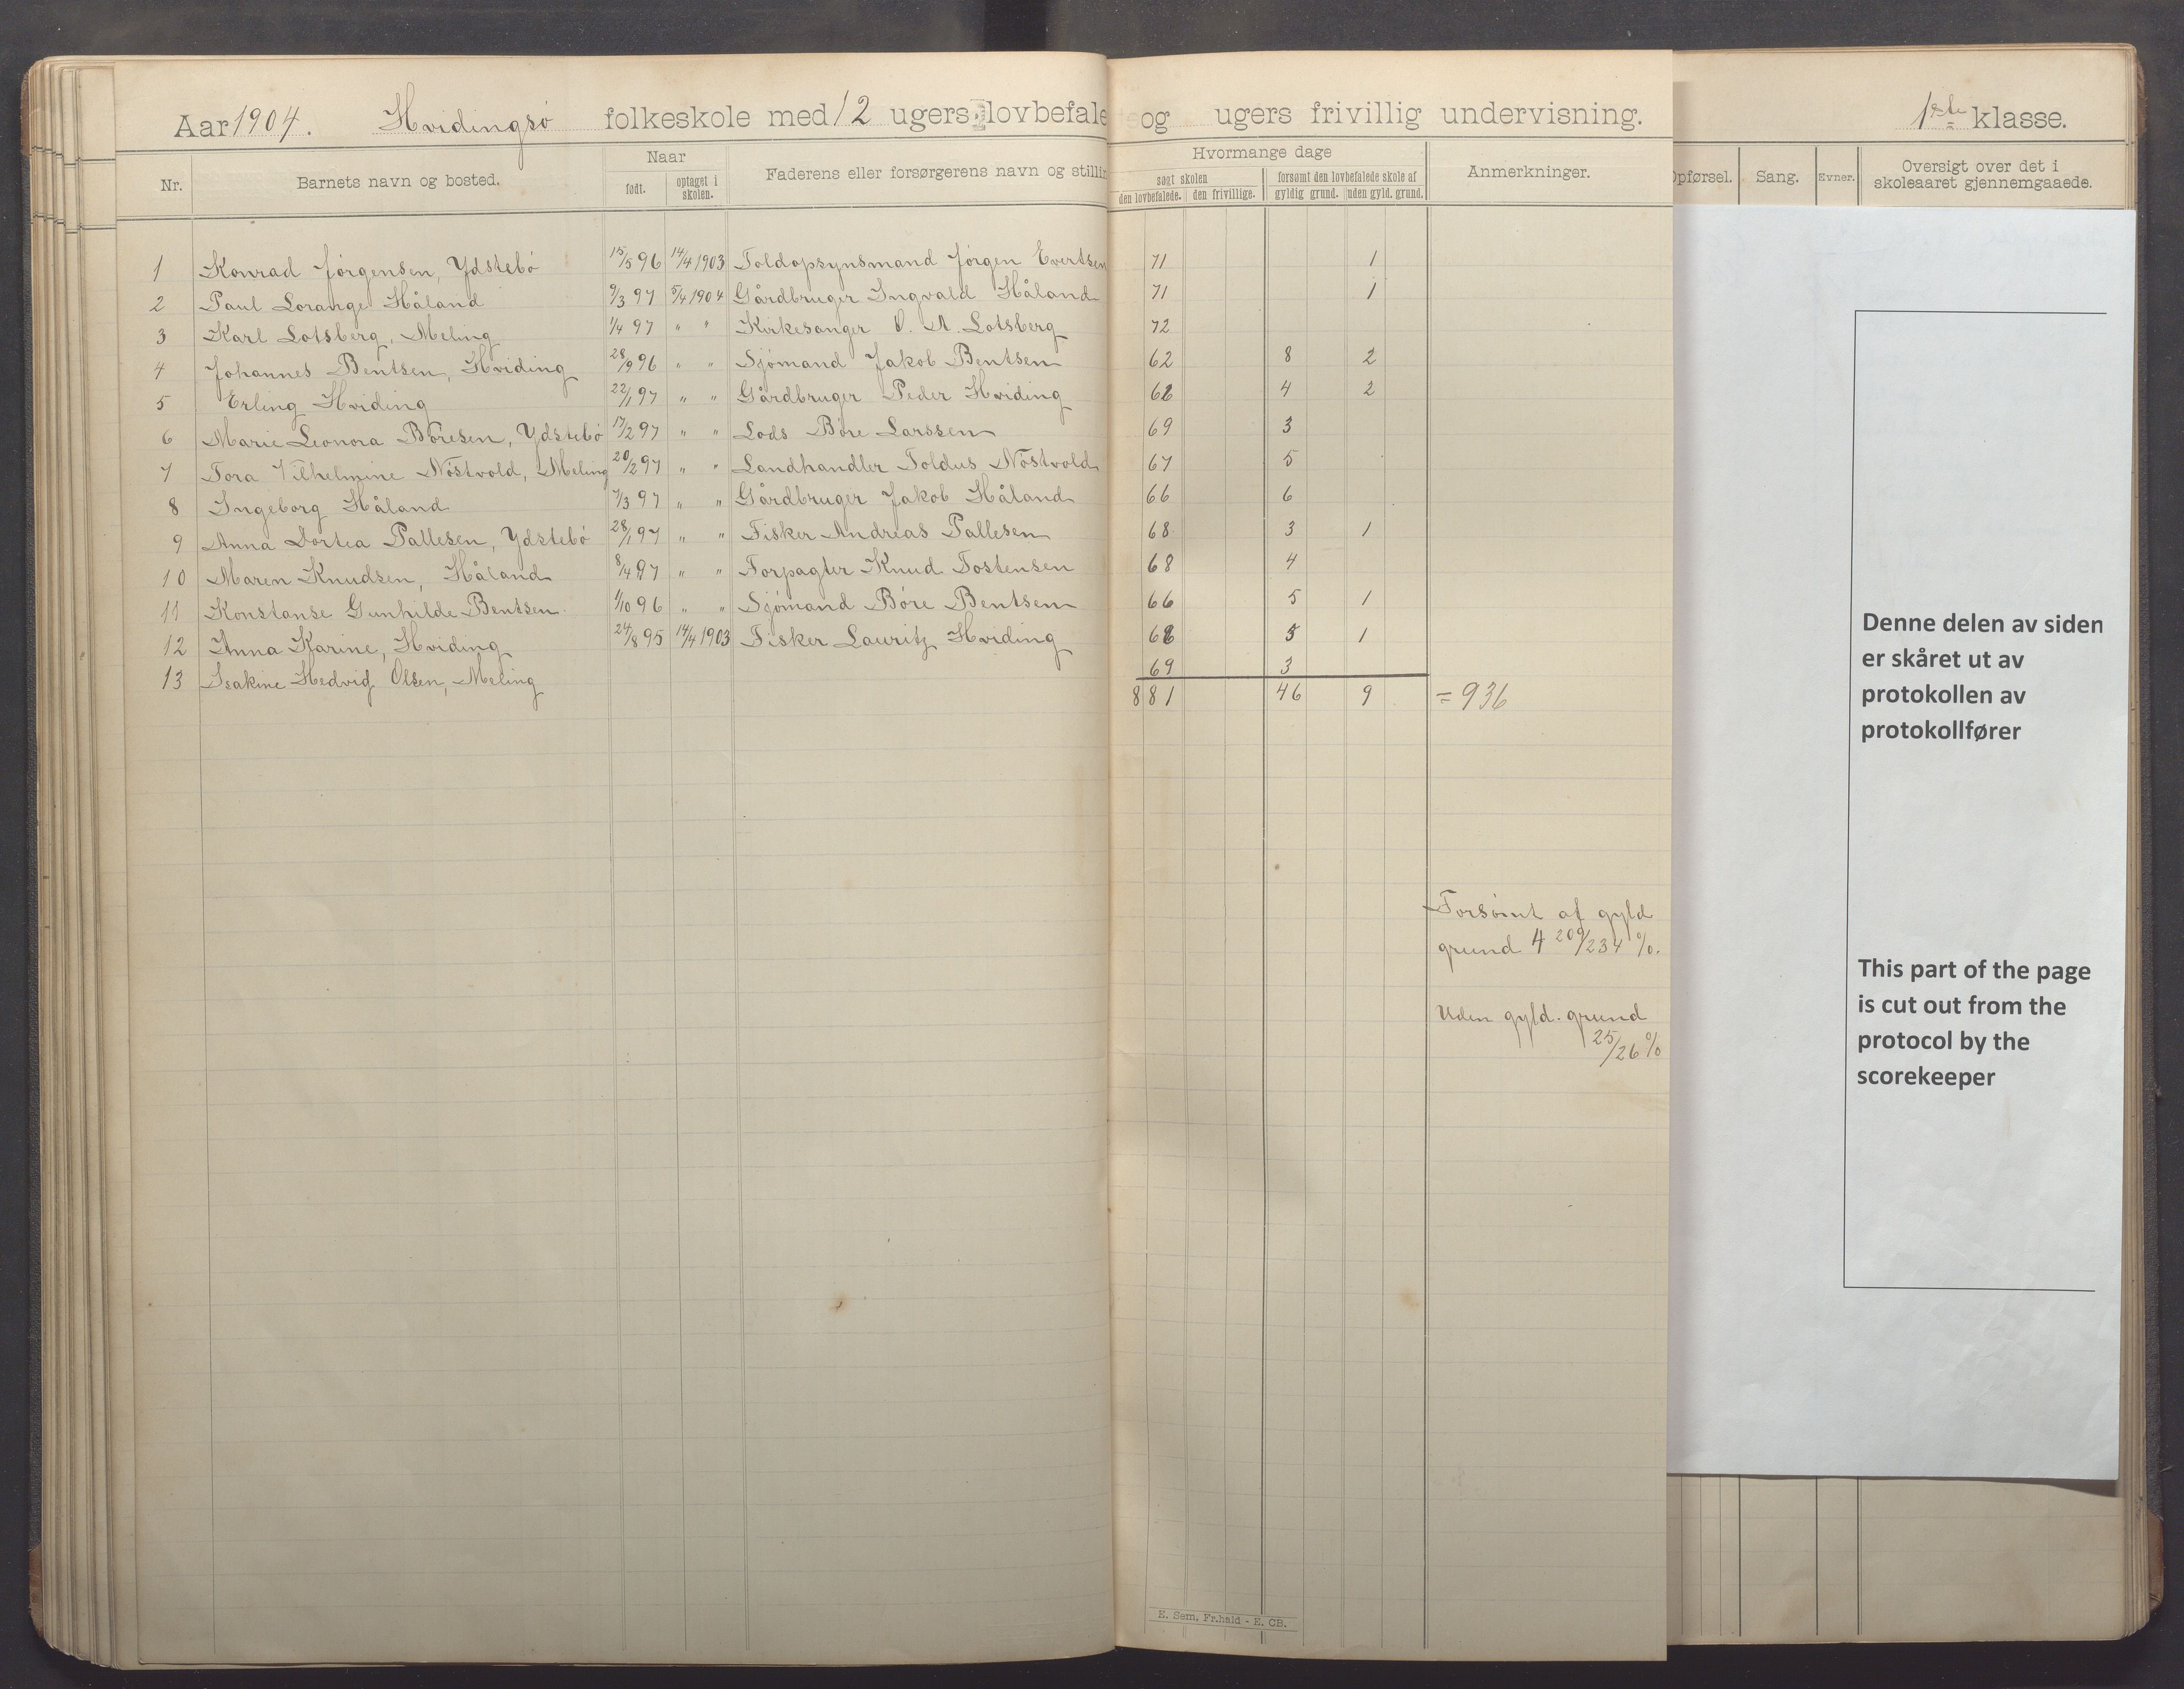 Aar 1904. Hvidingsö folkeskole med 12 ugers lovbefale og ugers frivillig undervisning. 1ste klasse.
Nr. Barnets navn og bosted. Naar født. optaget i skolen. Faderens eller forsørgerens navn og stillin Hvormange dage søgt skolen den lovbefalede. den frivillige. forsømt den lovbefalede skole af gyldig grund. uden gyld. grund. Anmerkninger. Opførsel. Sang. Evner. Oversigt over det i skoleaaret gjennemgaaede.
1 Konrad Jörgensen, Ydstebö 15/5 96 14/4 1903 Toldopsynsmand Jörgen Evertsen 71 1
2 Paul Lorange Håland 9/3 97 5/4 1904 Gårdbruger Ingvald Håland 71 1
3 Karl Lotsberg, Meling 1/4 97 " " Kirkesanger O. A. Lotsberg 72
4 Johannes Bentsen, Hviding 28/9 96 " " Sjömand Jakob Bentsen 62 8 2
5 Erling Hviding 22/1 97 " " Gårdbruger Peder Hviding 4 2
6 Marie Leonora Böresen, Ydstebö 17/2 97 " " Lods Böre Larssen 69 3
7 Tora Vilhelmine Nöstvold, Meling 20/2 97 " " Landhandler Toldus Nöstvold 67 5
8 Ingeborg Håland 7/3 97 " " Gårdbruger Jakob Håland 66 6
9 Anna Dortea Pallesen, Ydstebö 28/1 97 " " Fisker Andreas Pallesen 68 3 1
10 Maren Knudsen, Håland 8/4 97 " " Forpagter Knud Tostensen 68 4
11 Konstanse Gunhilde Bentsen 1/10 96 " " Sjömand Böre Bentsen 66 5 1
12 Anna Karine, Hviding 24/8 95 14/4 1903 Fisker Lauritz Hviding 5 1
13 Isakine Hedvig Olsen, Meling 69 3
881 46 9 = 936
Forsömt af gyld
grund 4 209/234 %.
Uden gyld. grund
25/26 %
E. Sem, Fr.hald - E. CB.
Denne delen av siden
er skåret ut av
protokollen av
protokollfører
This part of the page
is cut out from the
protocol by the
scorekeeper